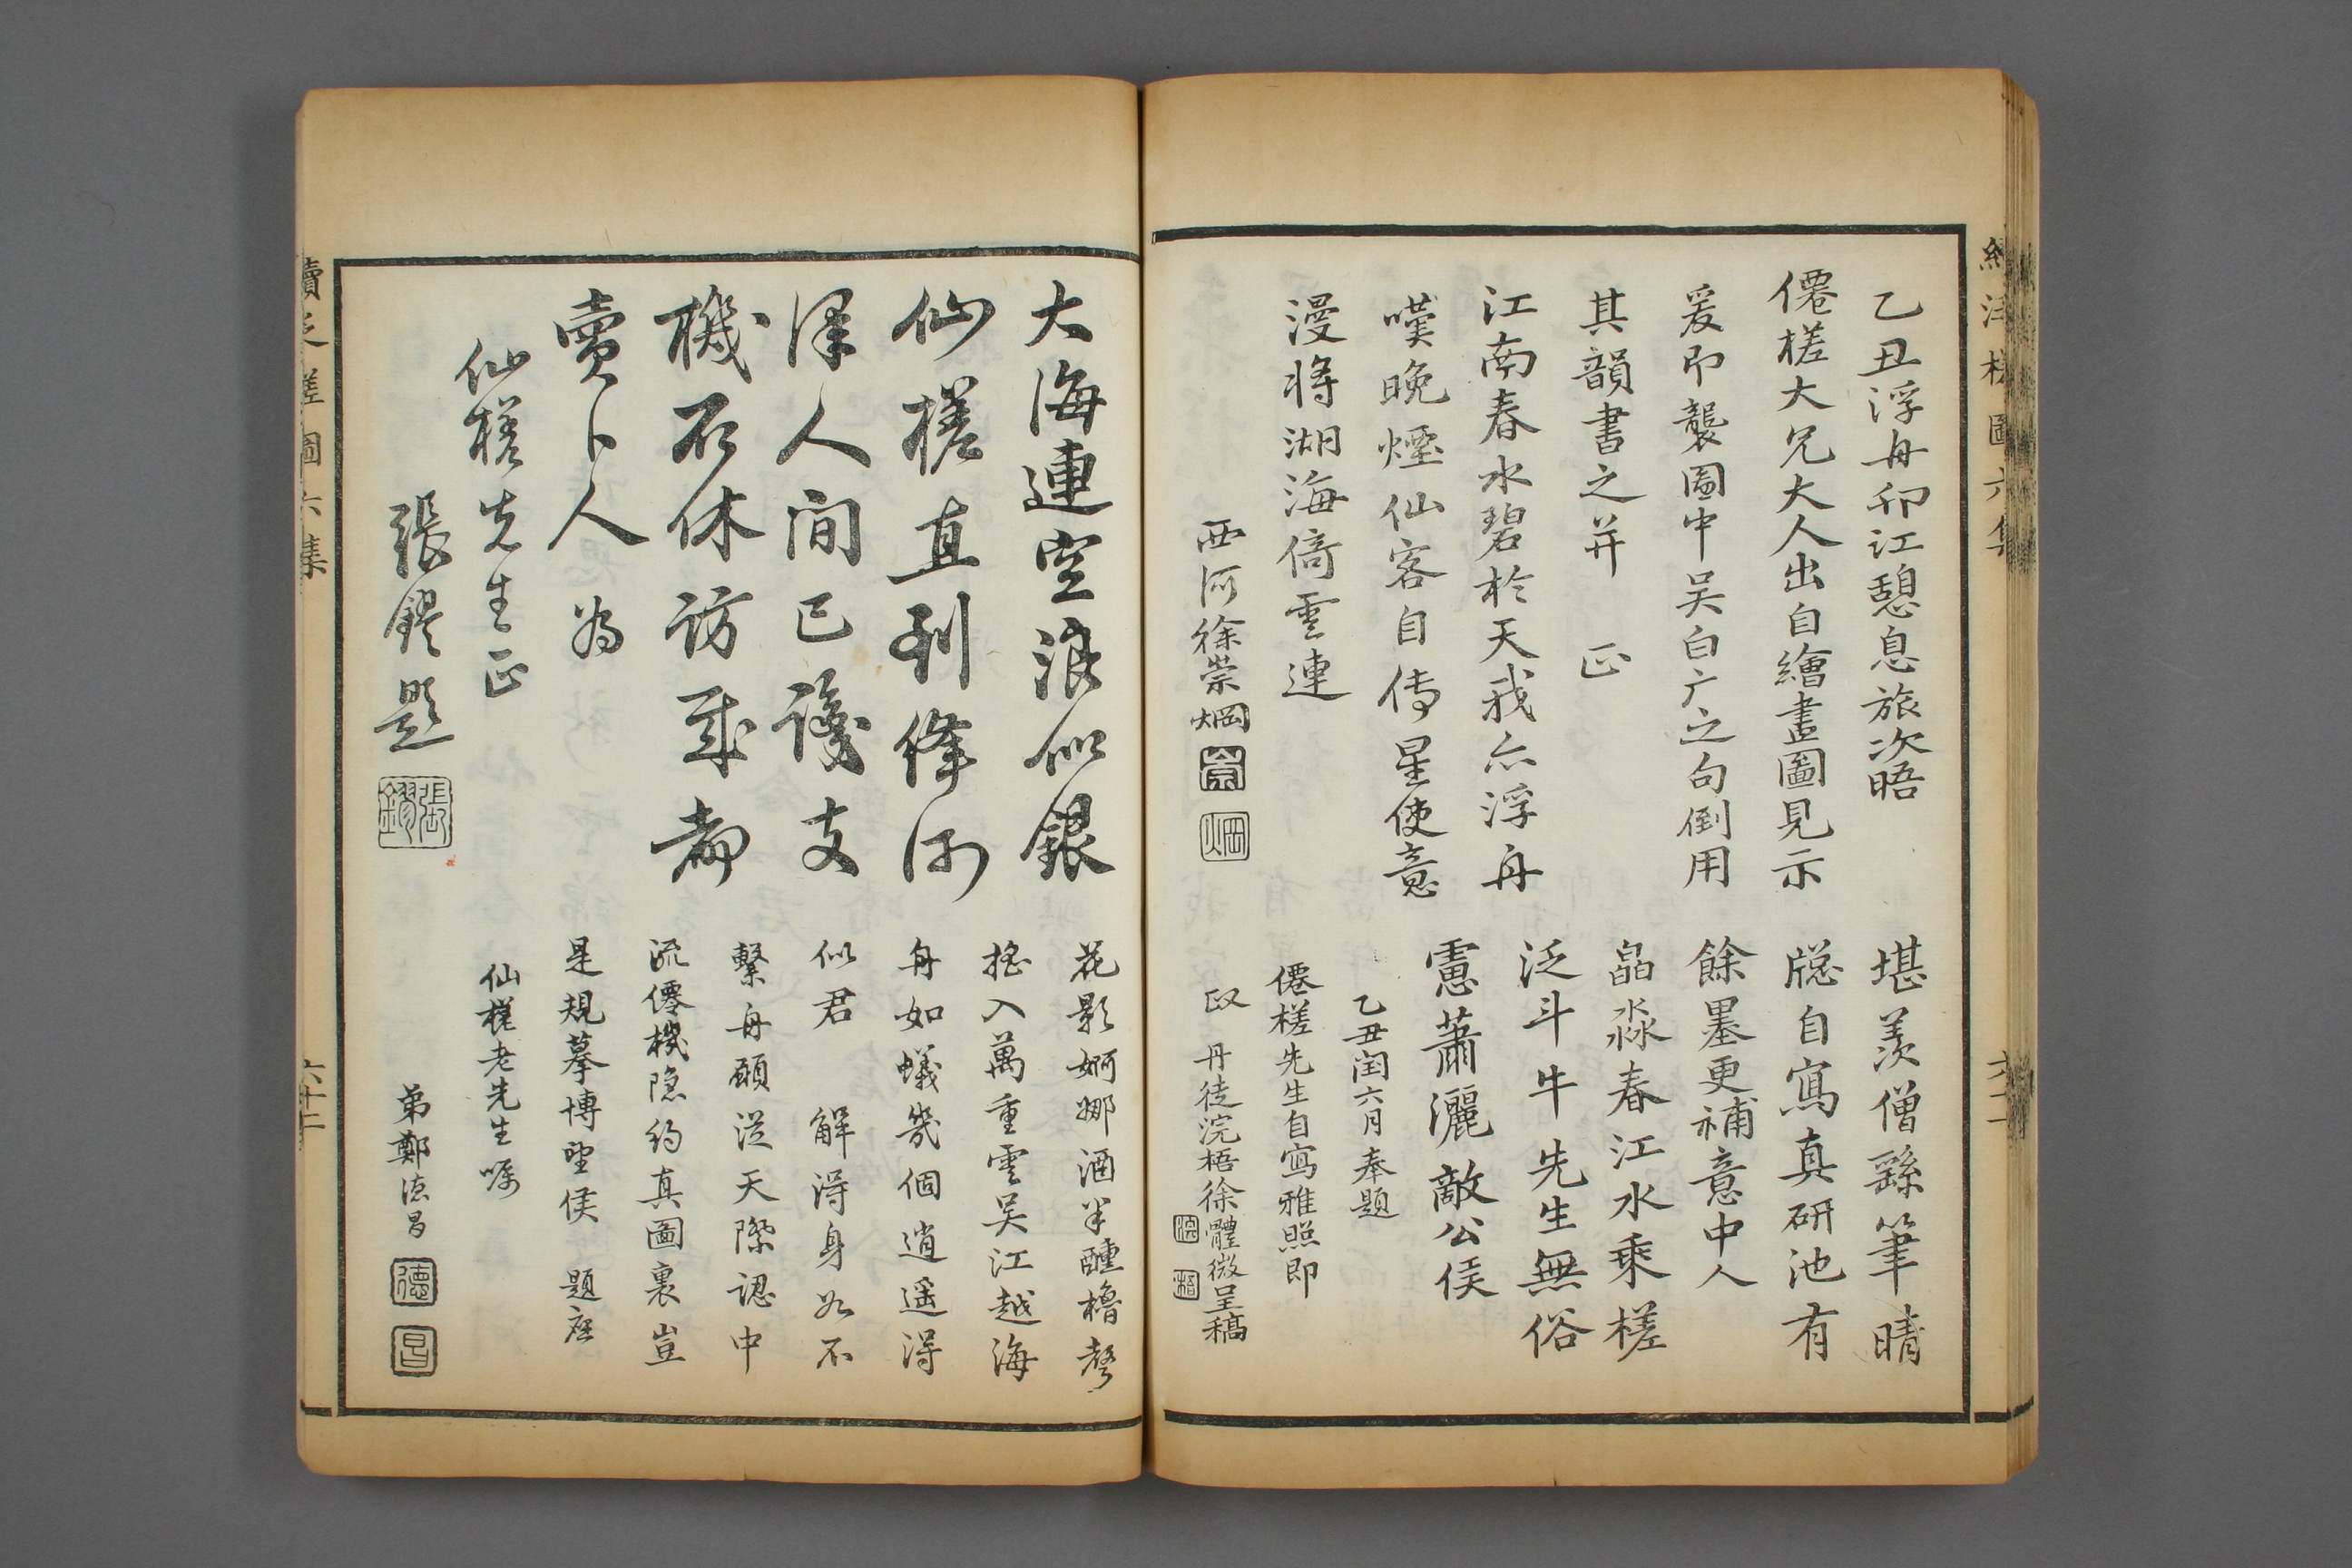 續泛槎圖六集
乙丑浮舟邗江憩息旅次晤
僊槎大兄大人出自繪畫圖見示
爰即襲圖中吴白广之句倒用
其韻書之并 正
江南春水碧於天我亦浮舟
嘆晚煙仙客自傳星使意
漫將湖海倚雲連
西河徐崇烱
崇
烱
堪羨僧繇筆晴
牕自寫真研池有
餘墨更補意中人
皛淼春江水乘槎
泛斗牛先生無俗
慮蕭灑敵公侯
乙丑閏六月奉題
僊槎先生自寫雅照即
政 丹徒浣梧徐體微呈稿
浣
梧
大海連空浪似銀
仙槎直到絳河
津人間已識支
機石休訪成都
賣卜人 為
仙槎先生正
張鏐題
張鏐
花影婀娜酒半醺櫓聲
搖入萬重雲吴江越海
舟如蟻幾個逍遥得
似君 解得身如不
繫舟頋從天際認中
流僊機隐約真圖裏豈
是規摹博望侯 題應
仙槎老先生嘱
弟鄭德昌
德
昌
續泛槎圖六集
六十二